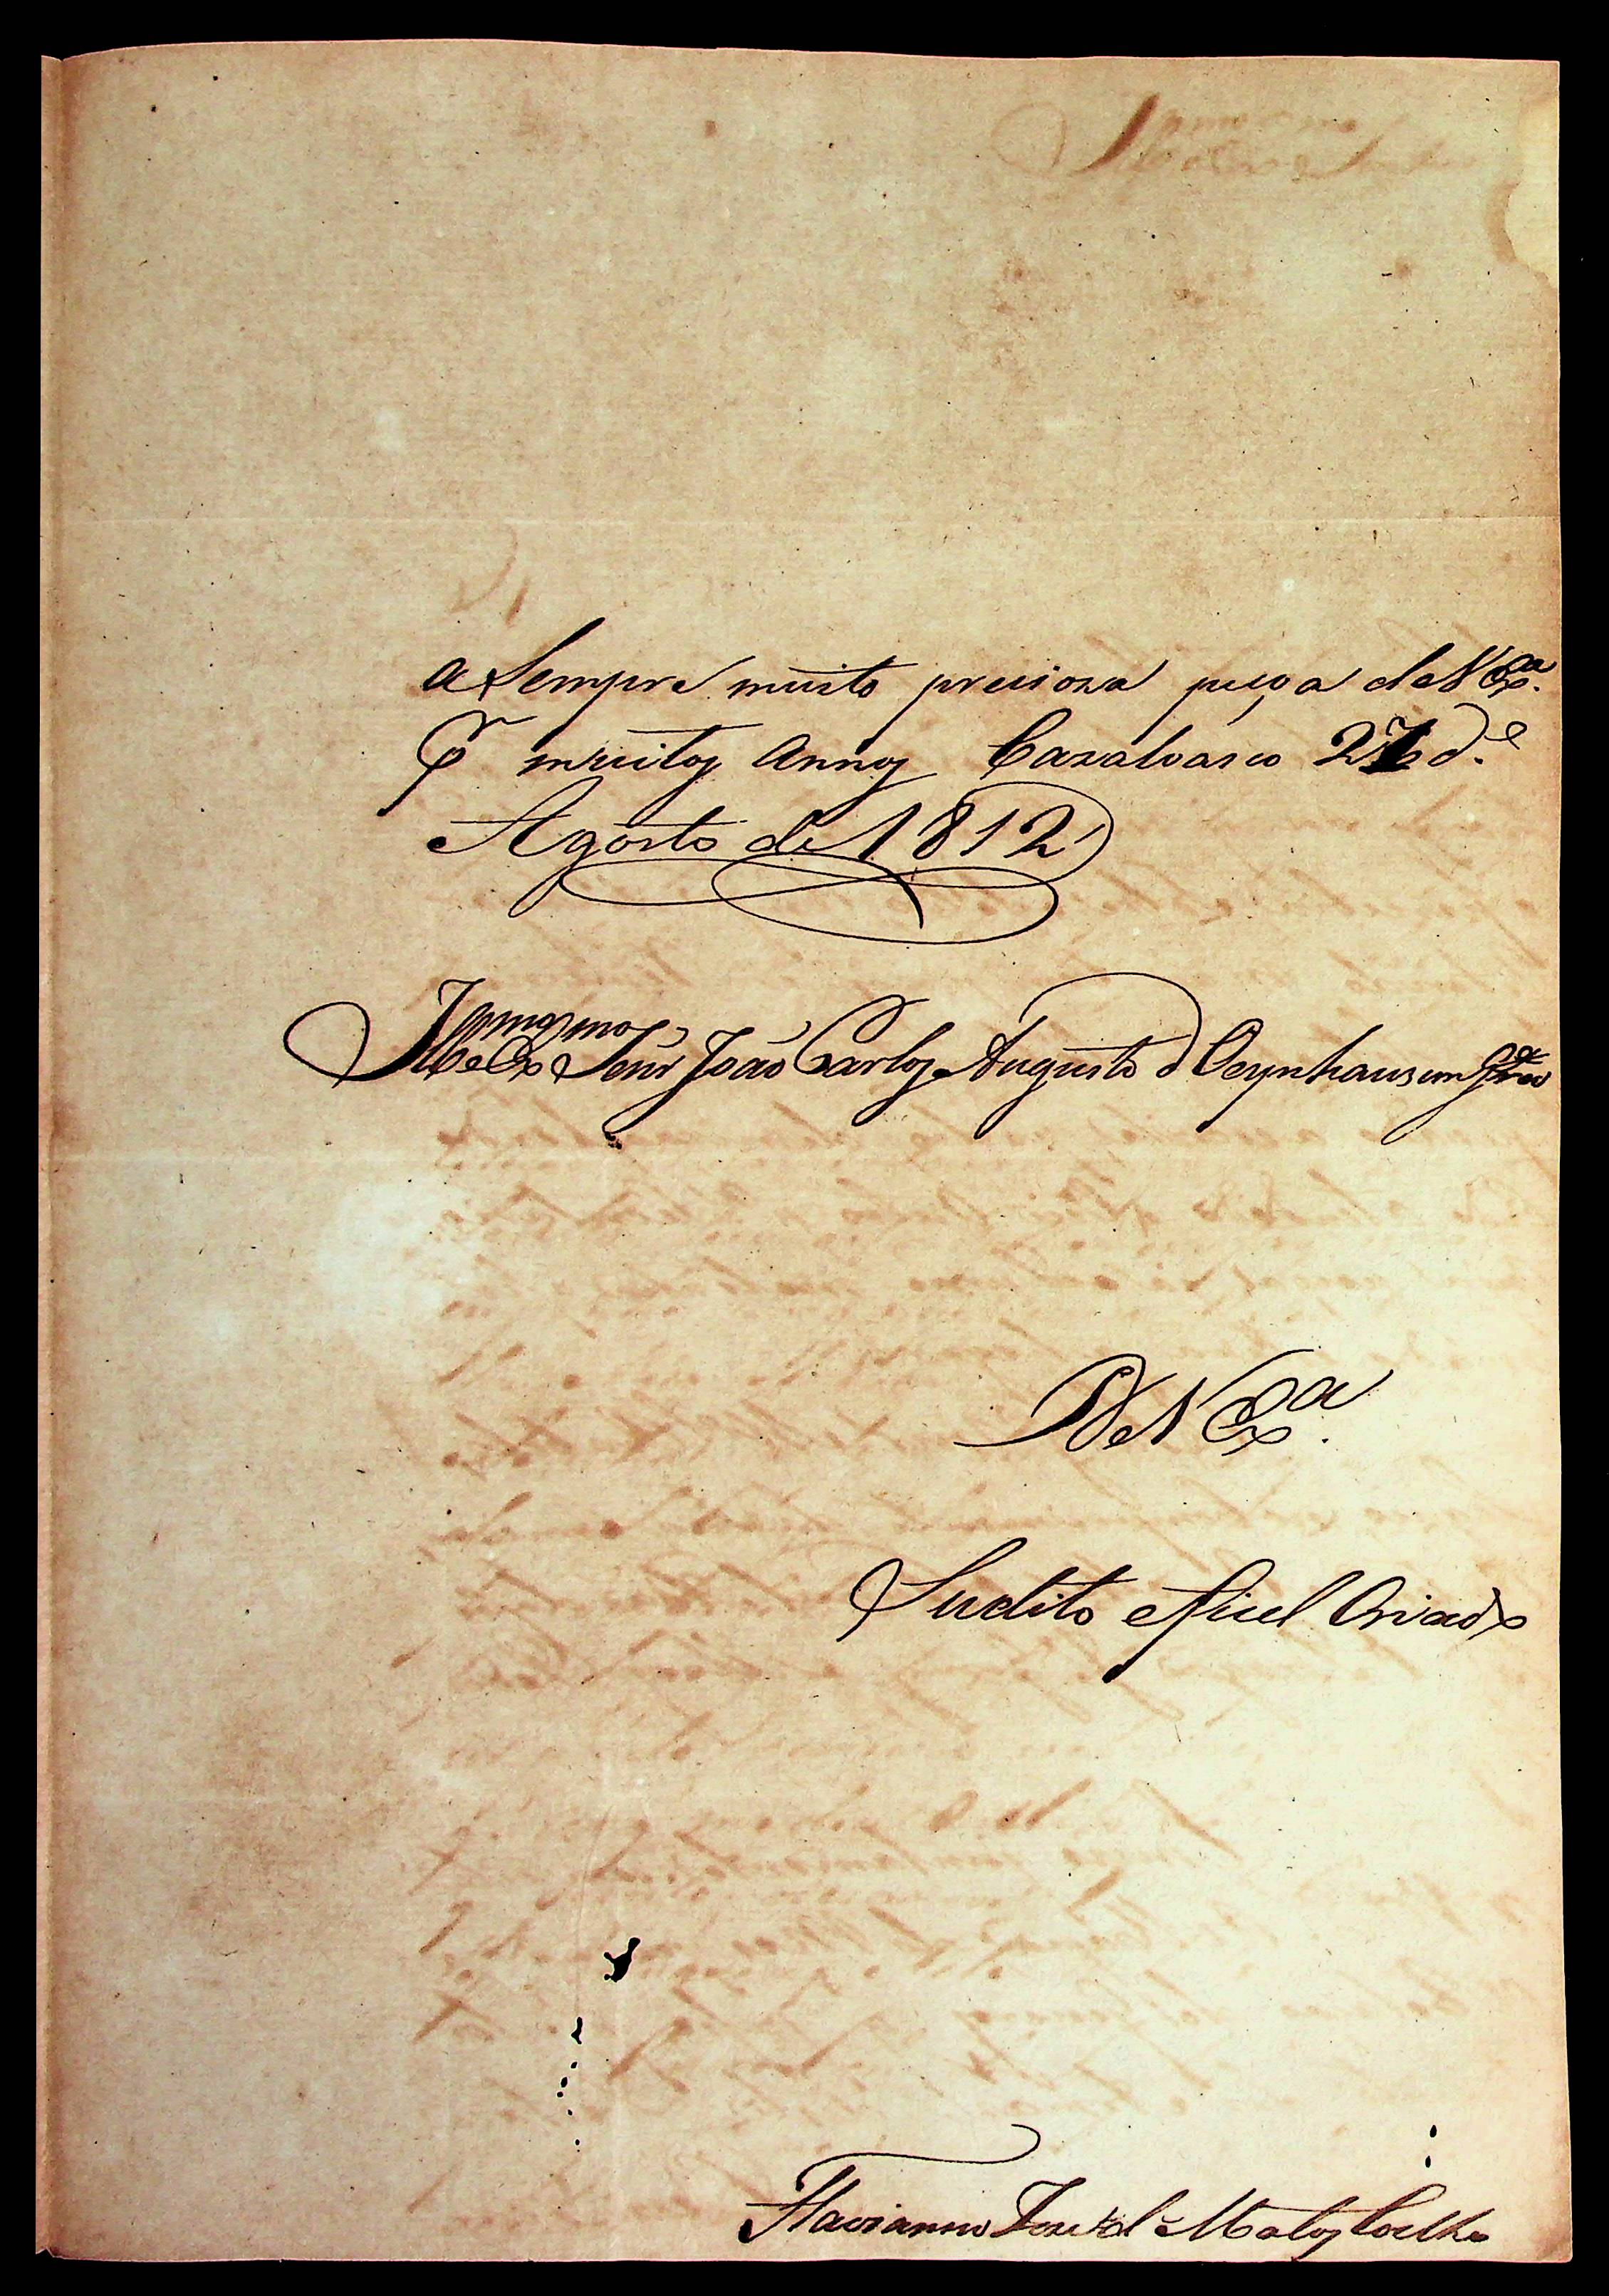 a Sempre muito precioza peçoa de V Exª.
Pr muitos annos Cazalvasco 27 de
Agosto de 1812
Illmo e Exmo Senr João Carlos Augusto d Oeynhausem
De V Exª.
Sudito e fiel Criado
Flavianno Joze de Matos Coelho